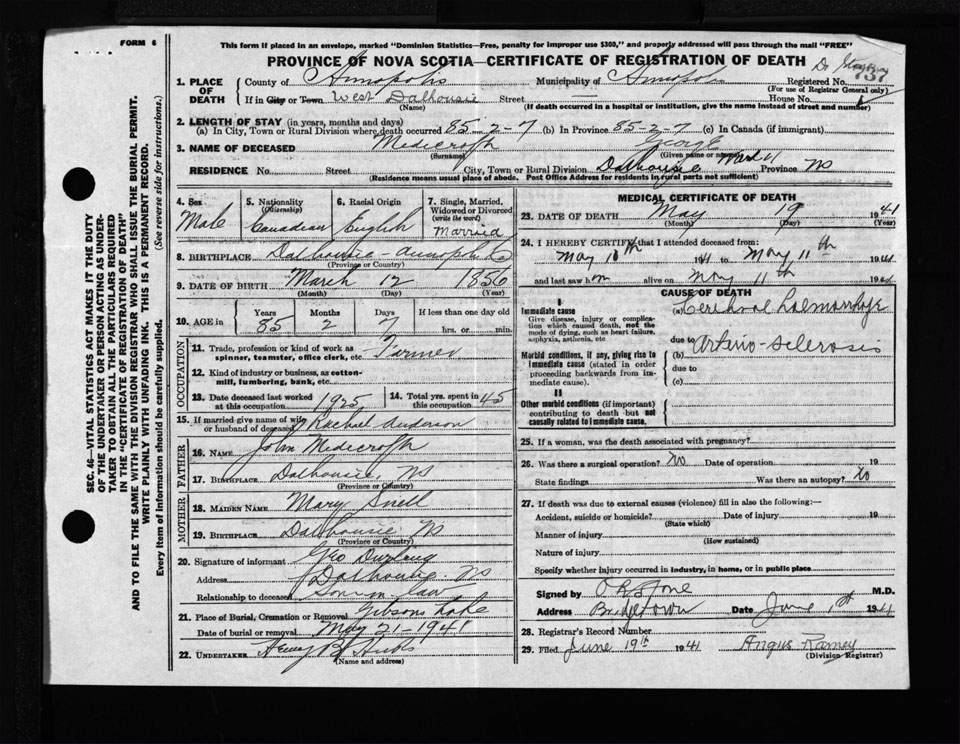 FORM 6
This form if placed in an envelope, marked "Dominion Statistics—Free, penalty for improper use $300," and properly addressed will pass through the mail "FREE"
PROVINCE OF NOVA SCOTIA—CERTIFICATE OF REGISTRATION OF DEATH
737
1. PLACE OF DEATH County of Annapolis Municipality of Annapolis Registered No.
(For use of Registrar General only)
If in City or Town West Dalhousie Street House No.
(Name) (If death occurred in a hospital or institution, give the name instead of street and number)
2. LENGTH OF STAY (in years, months and days)
(a) In City, Town or Rural Division where death occurred 85-2-7 (b) In Province 85-2-7 (c) In Canada (if immigrant)
3. NAME OF DECEASED Medicraft George
(Surname) (Given name or names)
RESIDENCE No. Street City, Town or Rural Division Dalhousie Ward 11 Province NS
(Residence means usual place of abode. Post Office Address for residents in rural parts not sufficient)
4. Sex Male
5. Nationality (Citizenship) Canadian
6. Racial Origin English
7. Single, Married, Widowed or Divorced (write the word) Married
8. BIRTHPLACE Dalhousie - Annapolis Co
(Province or Country)
9. DATE OF BIRTH March 12 1856
(Month) (Day) (Year)
10. AGE in Years 85 Months 2 Days 7 If less than one day old hrs. or min.
OCCUPATION
11. Trade, profession or kind of work as spinner, teamster, office clerk, etc. Farmer
12. Kind of industry or business, as cotton-mill, lumbering, bank, etc.
13. Date deceased last worked at this occupation 1925 14. Total yrs. spent in this occupation 45
15. If married give name of wife or husband of deceased Rachael Anderson
FATHER
16. NAME John Medicraft
17. BIRTHPLACE Dalhousie NS
(Province or Country)
MOTHER
18. MAIDEN NAME Mary Snell
19. BIRTHPLACE Dalhousie NS
(Province or Country)
20. Signature of informant Geo
Address Dalhousie NS
Relationship to deceased Son in law
21. Place of Burial, Cremation or Removal Gibsons Lake
Date of burial or removal May 21 - 1941
22. UNDERTAKER B Hicks
(Name and address)
MEDICAL CERTIFICATE OF DEATH
23. DATE OF DEATH May 19 1941
(Month) (Day) (Year)
24. I HEREBY CERTIFY that I attended deceased from:
May 10th 1941 to May 11th 1941
and last saw him alive on May 11th 1941
CAUSE OF DEATH
I
Immediate cause
Give disease, injury or complication which caused death, not the mode of dying, such as heart failure, asphyxia, asthenia, etc
(a) Cerebral haemorrhage
due to Arterio-sclerosis
Morbid conditions, if any, giving rise to immediate cause (stated in order proceeding backwards from immediate cause).
(b)
due to
(c)
II
Other morbid conditions (if important) contributing to death but not causally related to immediate cause.
25. If a woman, was the death associated with pregnancy?
26. Was there a surgical operation? No Date of operation 19
State findings Was there an autopsy? No
27. If death was due to external causes (violence) fill in also the following:—
Accident, suicide or homicide? Date of injury 19
(State which)
Manner of injury
(How sustained)
Nature of injury
Specify whether injury occurred in industry, in home, or in public place
Signed by Stone M.D.
Address Bridgetown Date June 1st 1941
28. Registrar's Record Number
29. Filed June 19th 1941 Angus Ramey
(Division Registrar)
SEC. 46—VITAL STATISTICS ACT MAKES IT THE DUTY
OF THE UNDERTAKER OR PERSON ACTING AS UNDER-
TAKER TO OBTAIN ALL THE PARTICULARS REQUIRED
IN THE "CERTIFICATE OF REGISTRATION OF DEATH"
AND TO FILE THE SAME WITH THE DIVISION REGISTRAR WHO SHALL ISSUE THE BURIAL PERMIT.
WRITE PLAINLY WITH UNFADING INK. THIS IS A PERMANENT RECORD.
Every item of information should be carefully supplied. (See reverse side for instructions.)